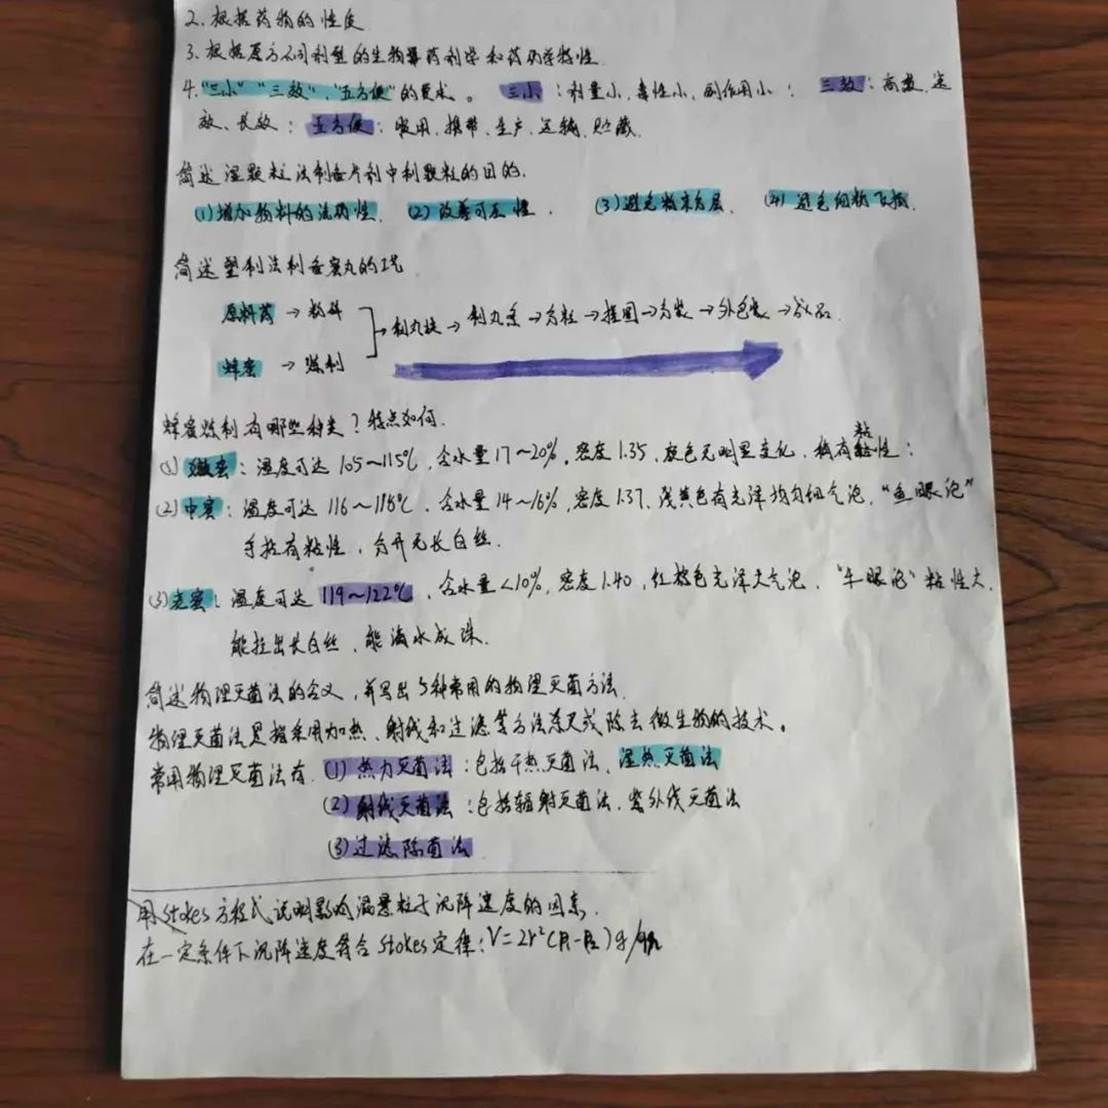 2、根据药物的性质
3、根据原方不同剂型的生物药剂学和药动学特性.
4."三小" "三效", "五方便"的要求。 三小 : 剂量小, 毒性小, 副作用小; 三效 : 高效, 速
效、长效; 五方便: 服用, 携带, 生产, 运输, 贮藏.
简述湿颗粒法制备片剂中制颗粒的目的.
(1)增加物料的流动性. (2)改善可压性. (3)避免粉末分层. (4)避免细粉飞扬.
简述塑制法制备蜜丸的工艺
原料药 → 粉碎
→制丸块 → 制丸条 → 分粒 → 搓圆 → 分装 → 外包装 → 成品.
蜂蜜 → 炼制
蜂蜜炼制有哪些种类?特点如何.
(1)嫩蜜: 温度可达 105~115℃, 含水量17~20%, 密度1.35, 颜色无明显变化, 稍有粘性;
(2)中蜜: 温度可达 116~118℃, 含水量14~16%, 密度1.37, 浅黄色有光泽均匀细气泡, "鱼眼泡"
手捻有粘性, 分开无长白丝.
(3)老蜜: 温度可达 119~122℃, 含水量<10%, 密度1.40, 红棕色光泽大气泡, "牛眼泡" 粘性大,
能拉出长白丝, 能滴水成珠.
简述物理灭菌法的含义, 并写出5种常用的物理灭菌方法.
物理灭菌法是指采用加热、射线和过滤等方法杀灭或除去微生物的技术。
常用物理灭菌法有 (1)热力灭菌法: 包括干热灭菌法, 湿热灭菌法
(2)射线灭菌法: 包括辐射灭菌法, 紫外线灭菌法
(3)过滤除菌法
用Stokes方程式说明影响混悬粒子沉降速度的因素.
在一定条件下沉降速度符合Stokes定律: V=2r²(ρ₁-ρ₂)g/9η